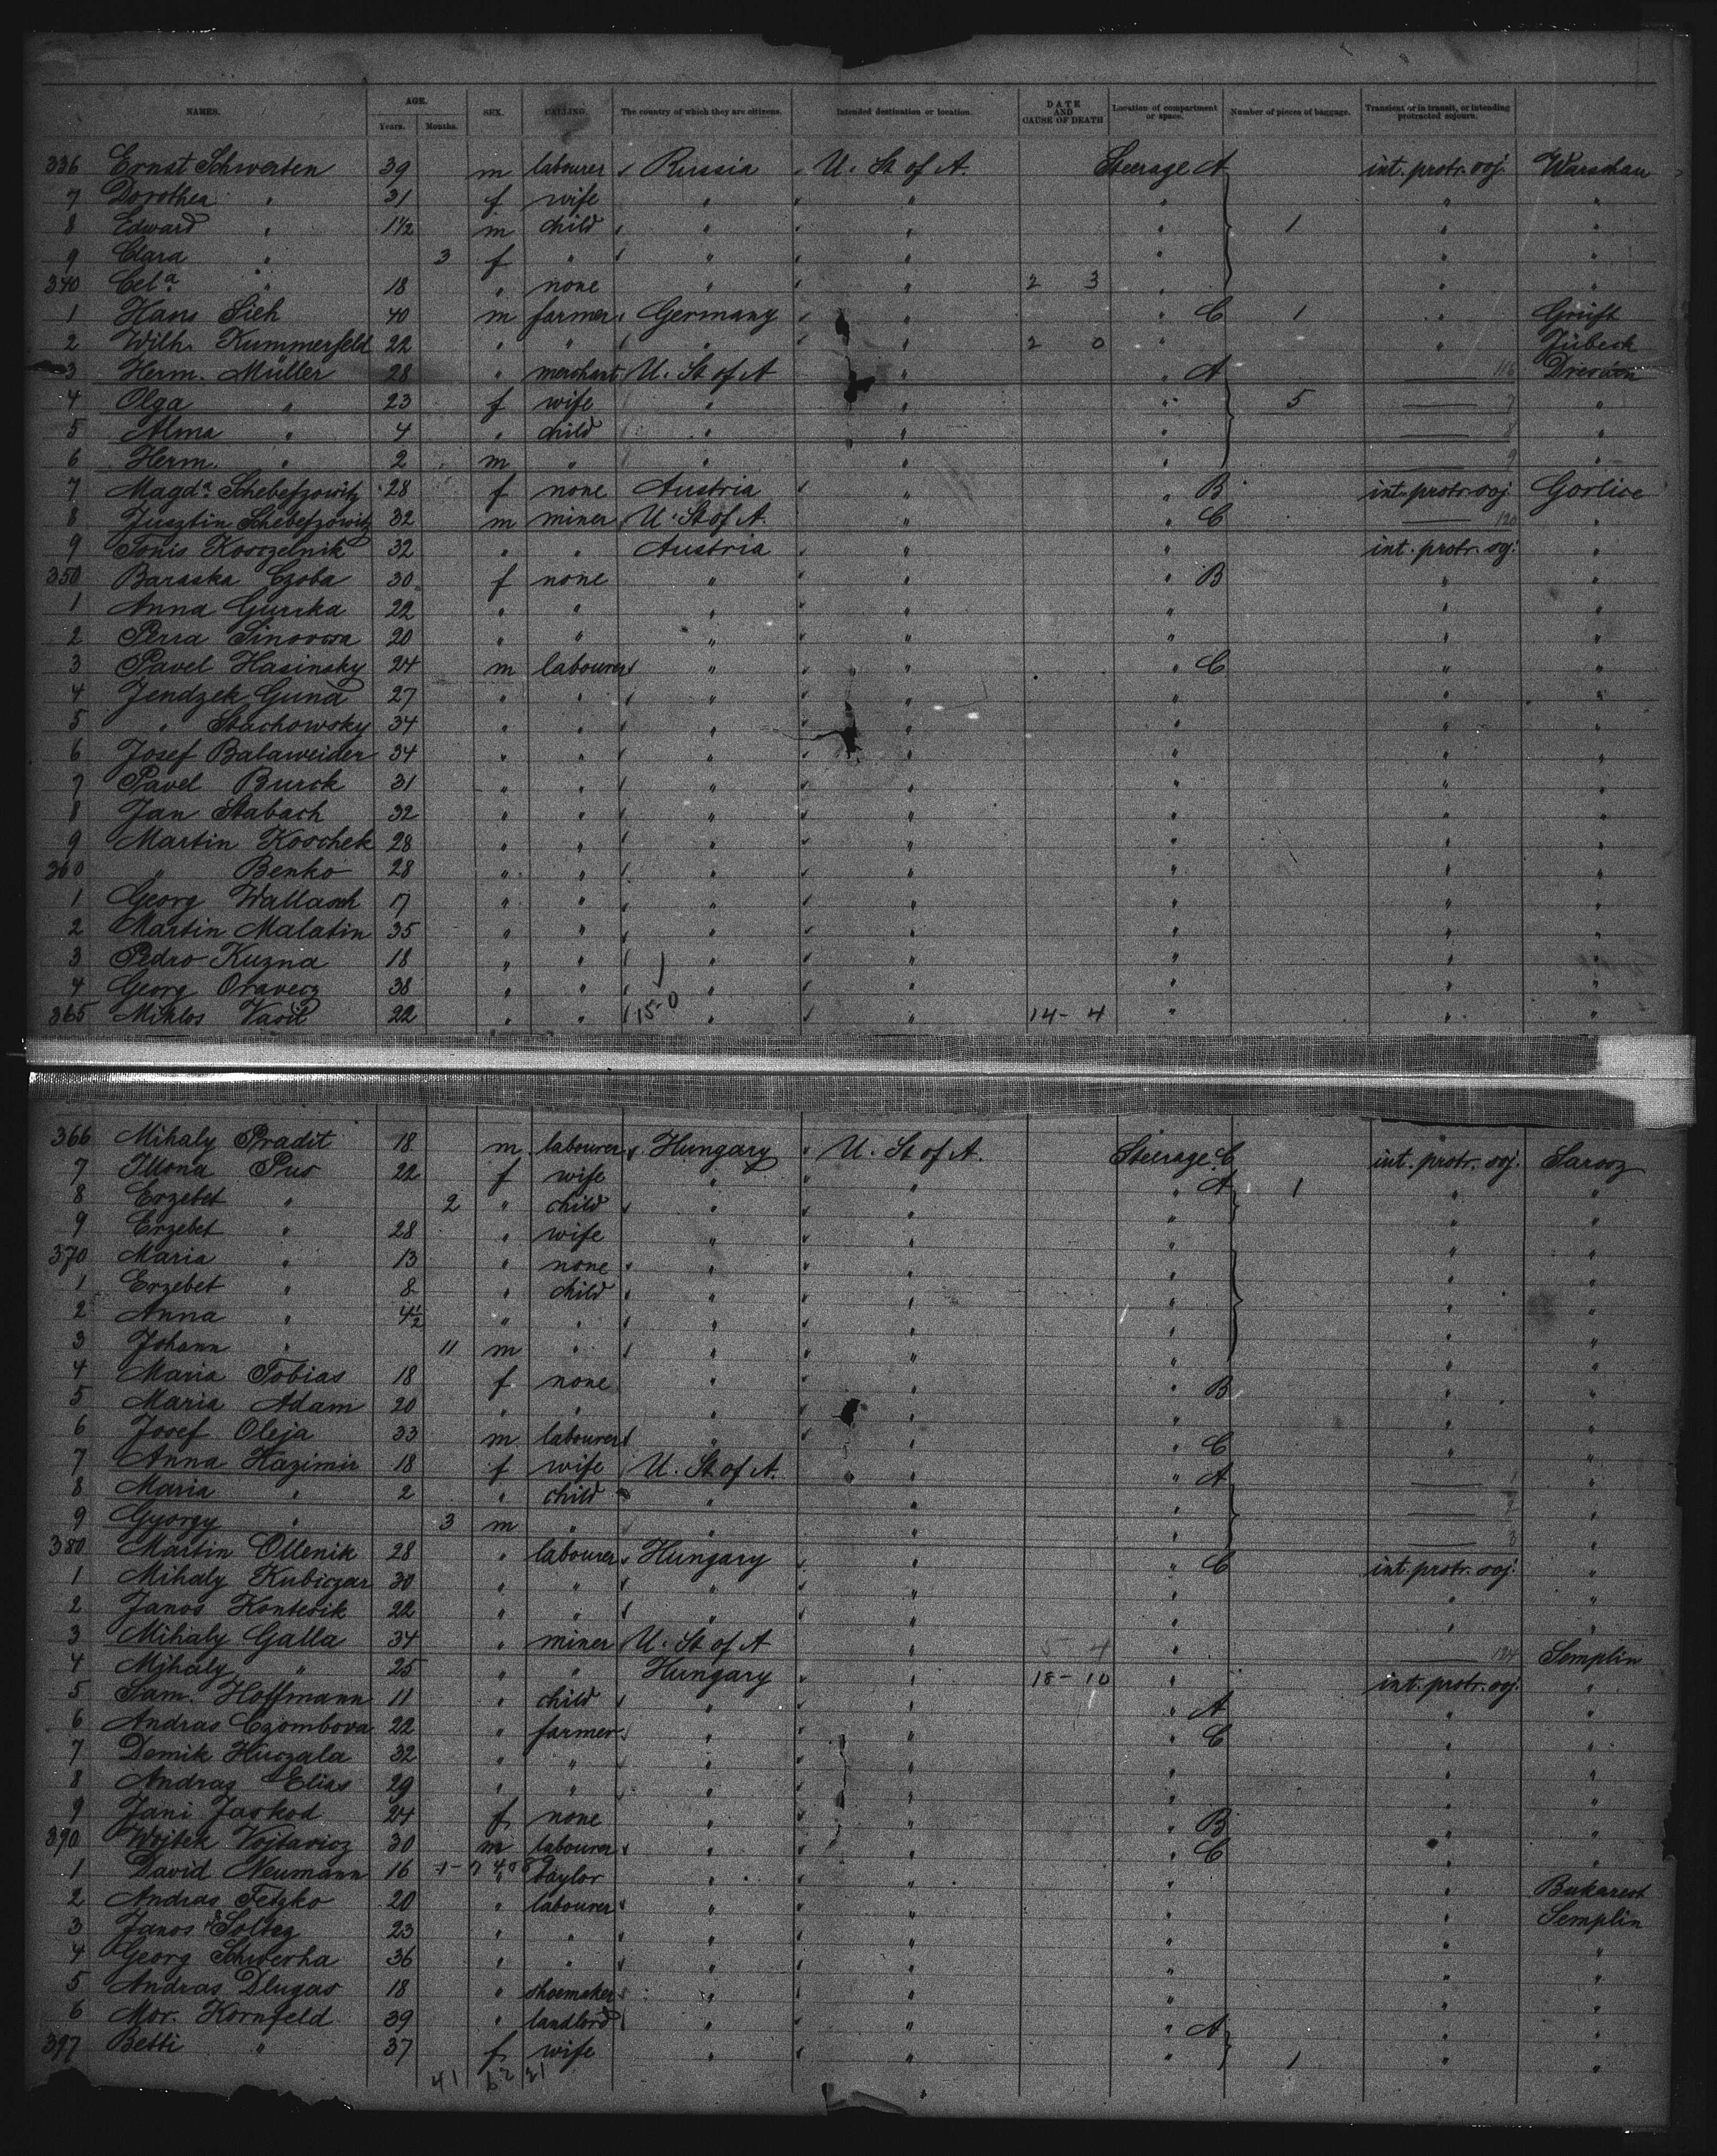 NAMES. AGE. Years. Months. SEX. CALLING. The country of which they are citizens. Intended destination or location. DATE AND CAUSE OF DEATH Location of compartment or space. Number of pieces of baggage. Transient or in transit, or intending protracted sojourn.
336 Ernst Schwerten 39 m labourer Russia U. St of A. Steerage A int. protr. soj. Warschau
7 Dorothea " 31 f wife " " " " "
8 Edward " 1½ m child " " " 1 " "
9 Clara " 3 f " " " " " "
340 Cela " 18 " none " " 2 3 " " "
1 Hans Sieh 40 m farmer Germany " " C 1 "
2 Wilh. Kummerfeld 22 " " " " 2 0 " " Jübeck
3 Herm. Müller 28 " merchant U. St of A " " A 116
4 Olga " 23 f wife " " " 5 7 "
5 Alma " 4 " child " " " 8 "
6 Herm. " 2 m " " " " 9 "
7 Magda Schebefzowitz 28 f none Austria " " B int. protr. soj. Gorlice
8 Jusztin Schebefzowitz 32 m miner U. St of A. " " C 120 "
9 Tonis Kosczelnik 32 " " Austria " " int. protr. soj. "
350 Baraska Czoba 30 f none " " " B " "
1 Anna Gurska 22 " " " " " " "
2 20 " " " " " " "
3 Pavel Hasinsky 24 m labourer " " " C " "
4 Jendzek Guna 27 " " " " " " "
5 " Stachowsky 34 " " " " " " "
6 Josef Balaweider 34 " " " " " " "
7 Pavel Burck 31 " " " " " " "
8 Jan Stabach 32 " " " " " " "
9 Martin Koschek 28 " " " " " " "
360 " Benko 28 " " " " " " "
1 Georg Wallasch 17 " " " " " " "
2 Martin Malatin 35 " " " " " " "
3 Pedro Kuzna 18 " " " " " " "
4 Georg Oravecz 38 " " " " " " "
365 Miklos Vasil 22 " " 15-0 " " 14- 4 " " "
366 Mihaly Pradit 18 m labourer Hungary U. St of A. Steerage C int. protr. soj. Sarosz
7 Illona Pus 22 f wife " " " A 1 " "
8 Erzebet " 2 " child " " " " "
9 Erzebet " 28 " wife " " " " "
370 Maria " 13 " none " " " " "
1 Erzebet " 8 " child " " " " "
2 Anna " 4½ " " " " " " "
3 Johann " 11 m " " " " " "
4 Maria Tobias 18 f none " " " B " "
5 Maria Adam 20 " " " " " " "
6 Josef Oleja 33 m labourer " " " C " "
7 Anna Kazimir 18 f wife U. St of A. " " A 1 "
8 Maria " 2 " child " " " 2 "
9 Gyorgy " 3 m " " " " 3 "
380 Martin Ollenik 28 " labourer Hungary " " C int. protr. soj. "
1 Mihaly Kubiczar 30 " " " " " " "
2 Janos Kontesik 22 " " " " " " "
3 Mihaly Galla 34 " miner U. St of A " 5 4 " 124 Semplin
4 Mihaly " 25 " " Hungary " 18- 10 " int. protr. soj. "
5 Sam. Hoffmann 11 " child " " " A " "
6 Andras Czombova 22 " farmer " " " C " "
7 Demik Huczala 32 " " " " " " "
8 Andras Elias 29 " " " " " " "
9 Jani Jaskod 24 f none " " " B " "
390 Wojtek Vojtavicz 30 m labourer " " " C " "
1 David Neumann 16 " taylor " " " " Bukarest
2 Andras Fetzko 20 " labourer " " " " Semplin
3 Janos Soltez 23 " " " " " " "
4 Georg Schwerha 36 " " " " " " "
5 Andras Dlugas 18 " shoemaker " " " " "
6 Mor. Kornfeld 39 " landlord " " " A " "
397 Betti " 37 f wife " " " 1 " "
41 62 21